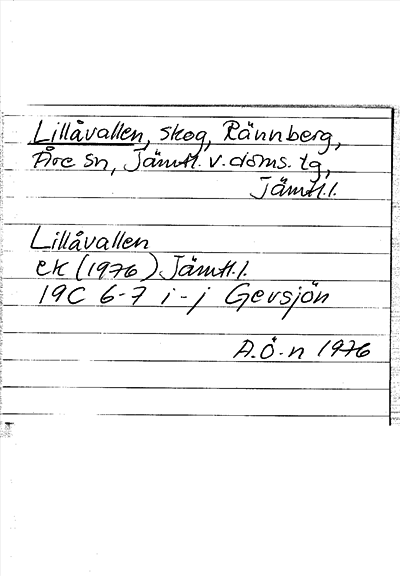 Lillåvallen, skog, Rännberg,
Åre sn, Jämtl. v. doms. tg,
Jämtl.l.
Lillåvallen
ek (1976) Jämtl.l.
19C 6-7 i-j Gevsjön
A.Ö-n 1976